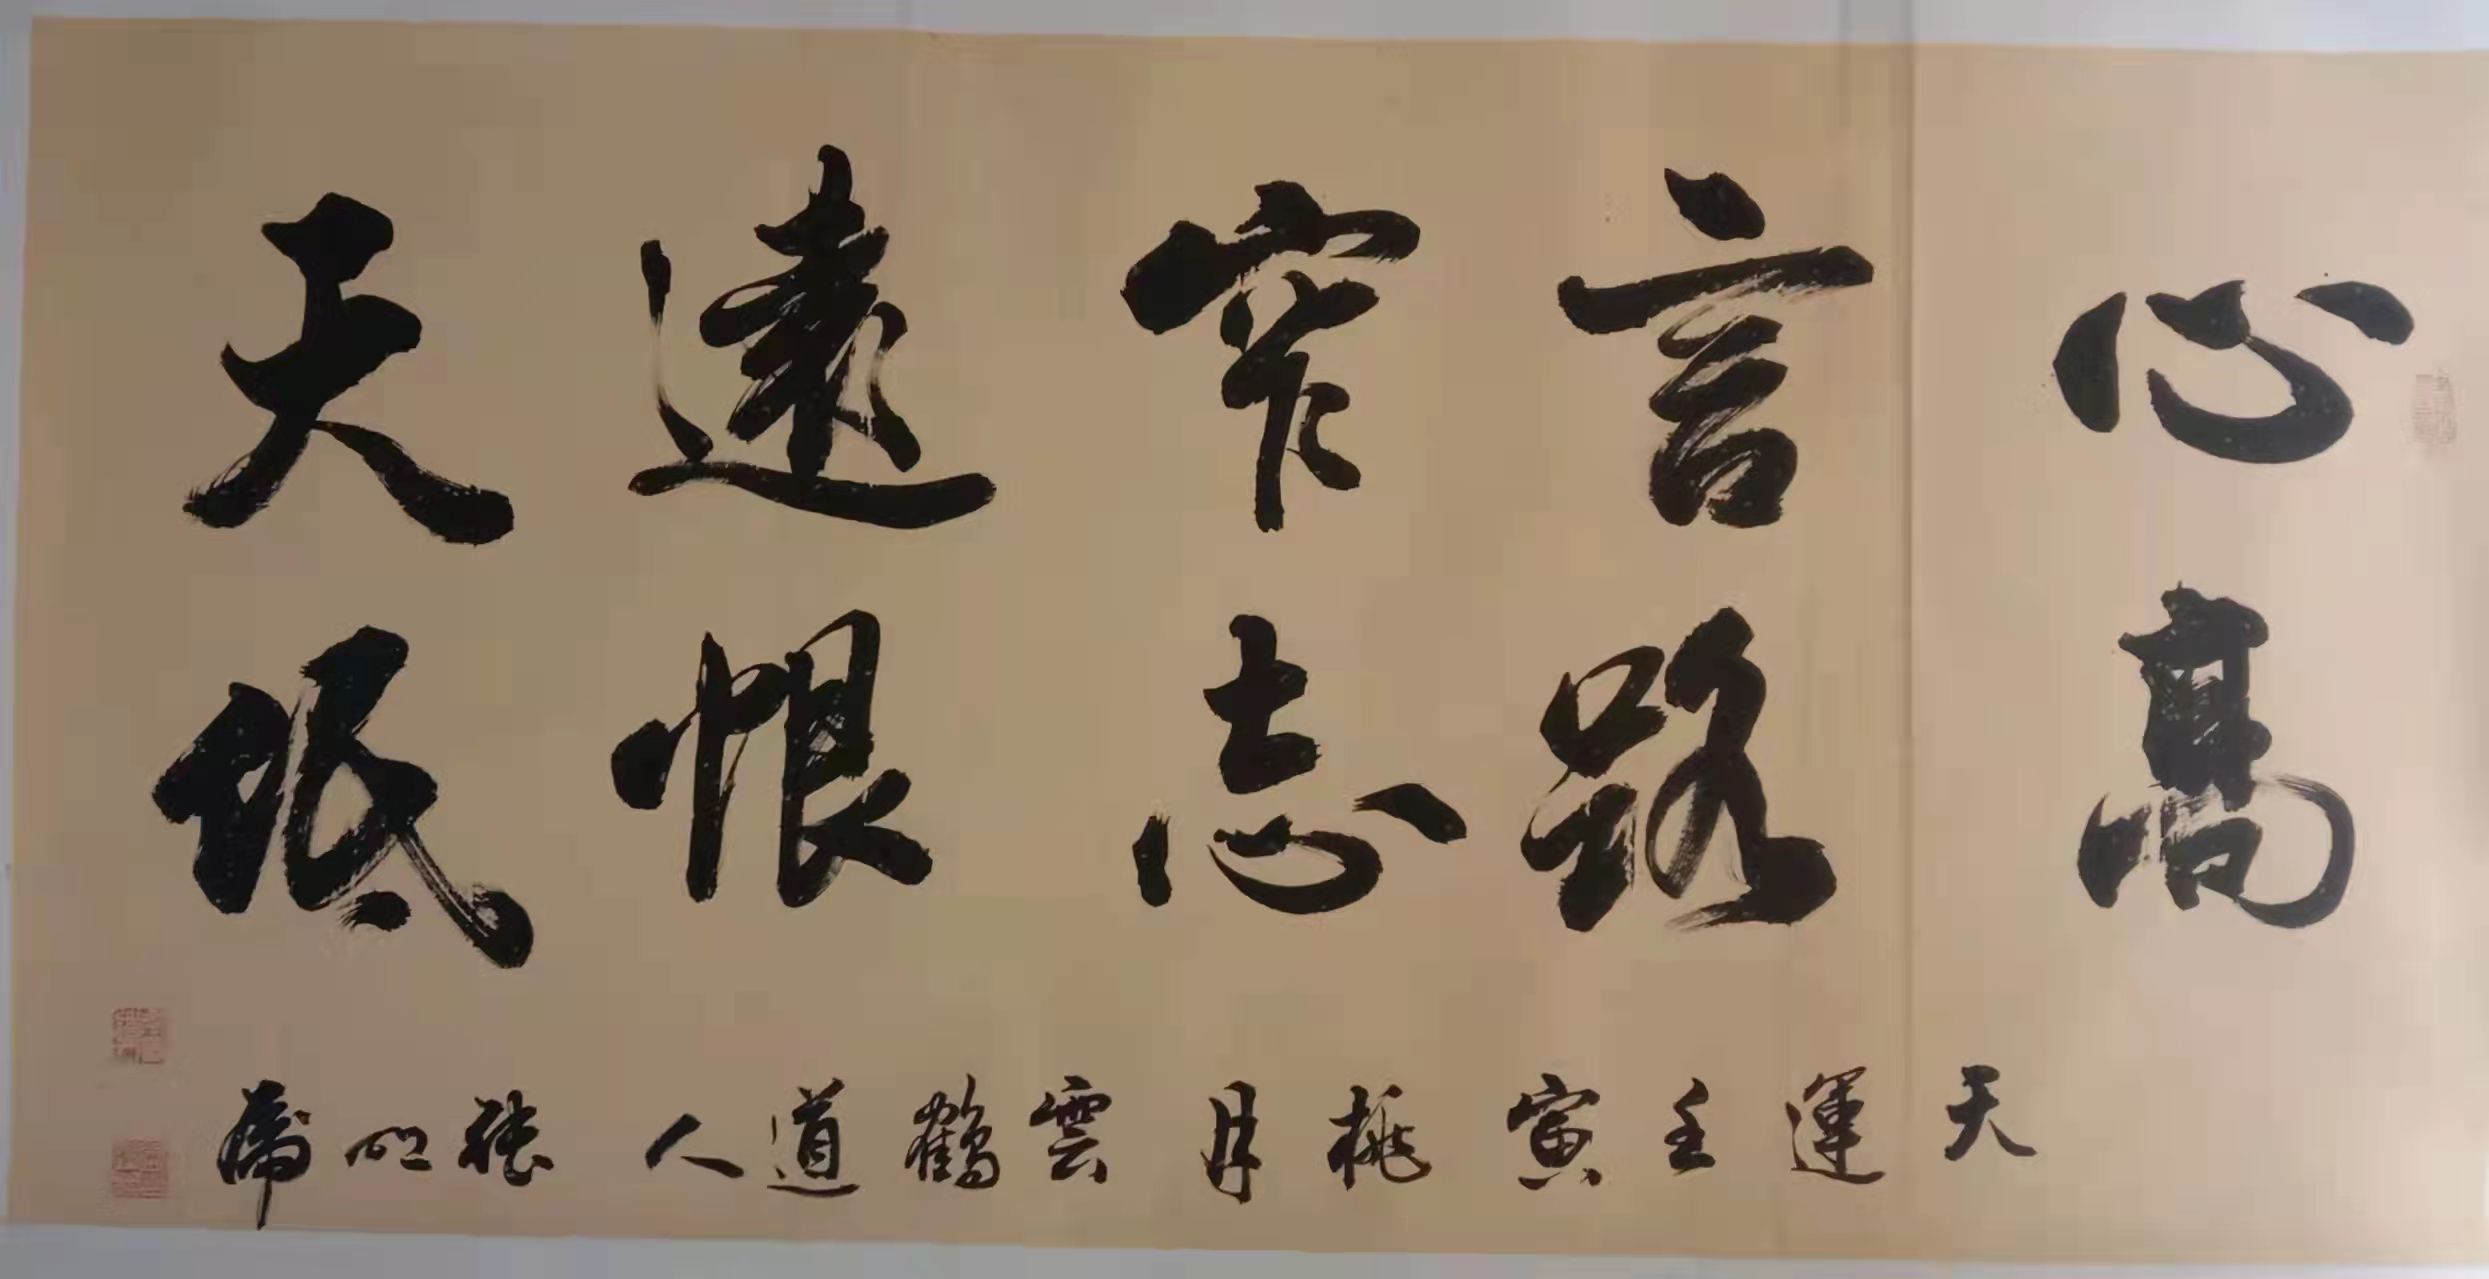 心高
言路
窄志
遠恨
天低
天運壬寅桃月 雲鶴道人 張